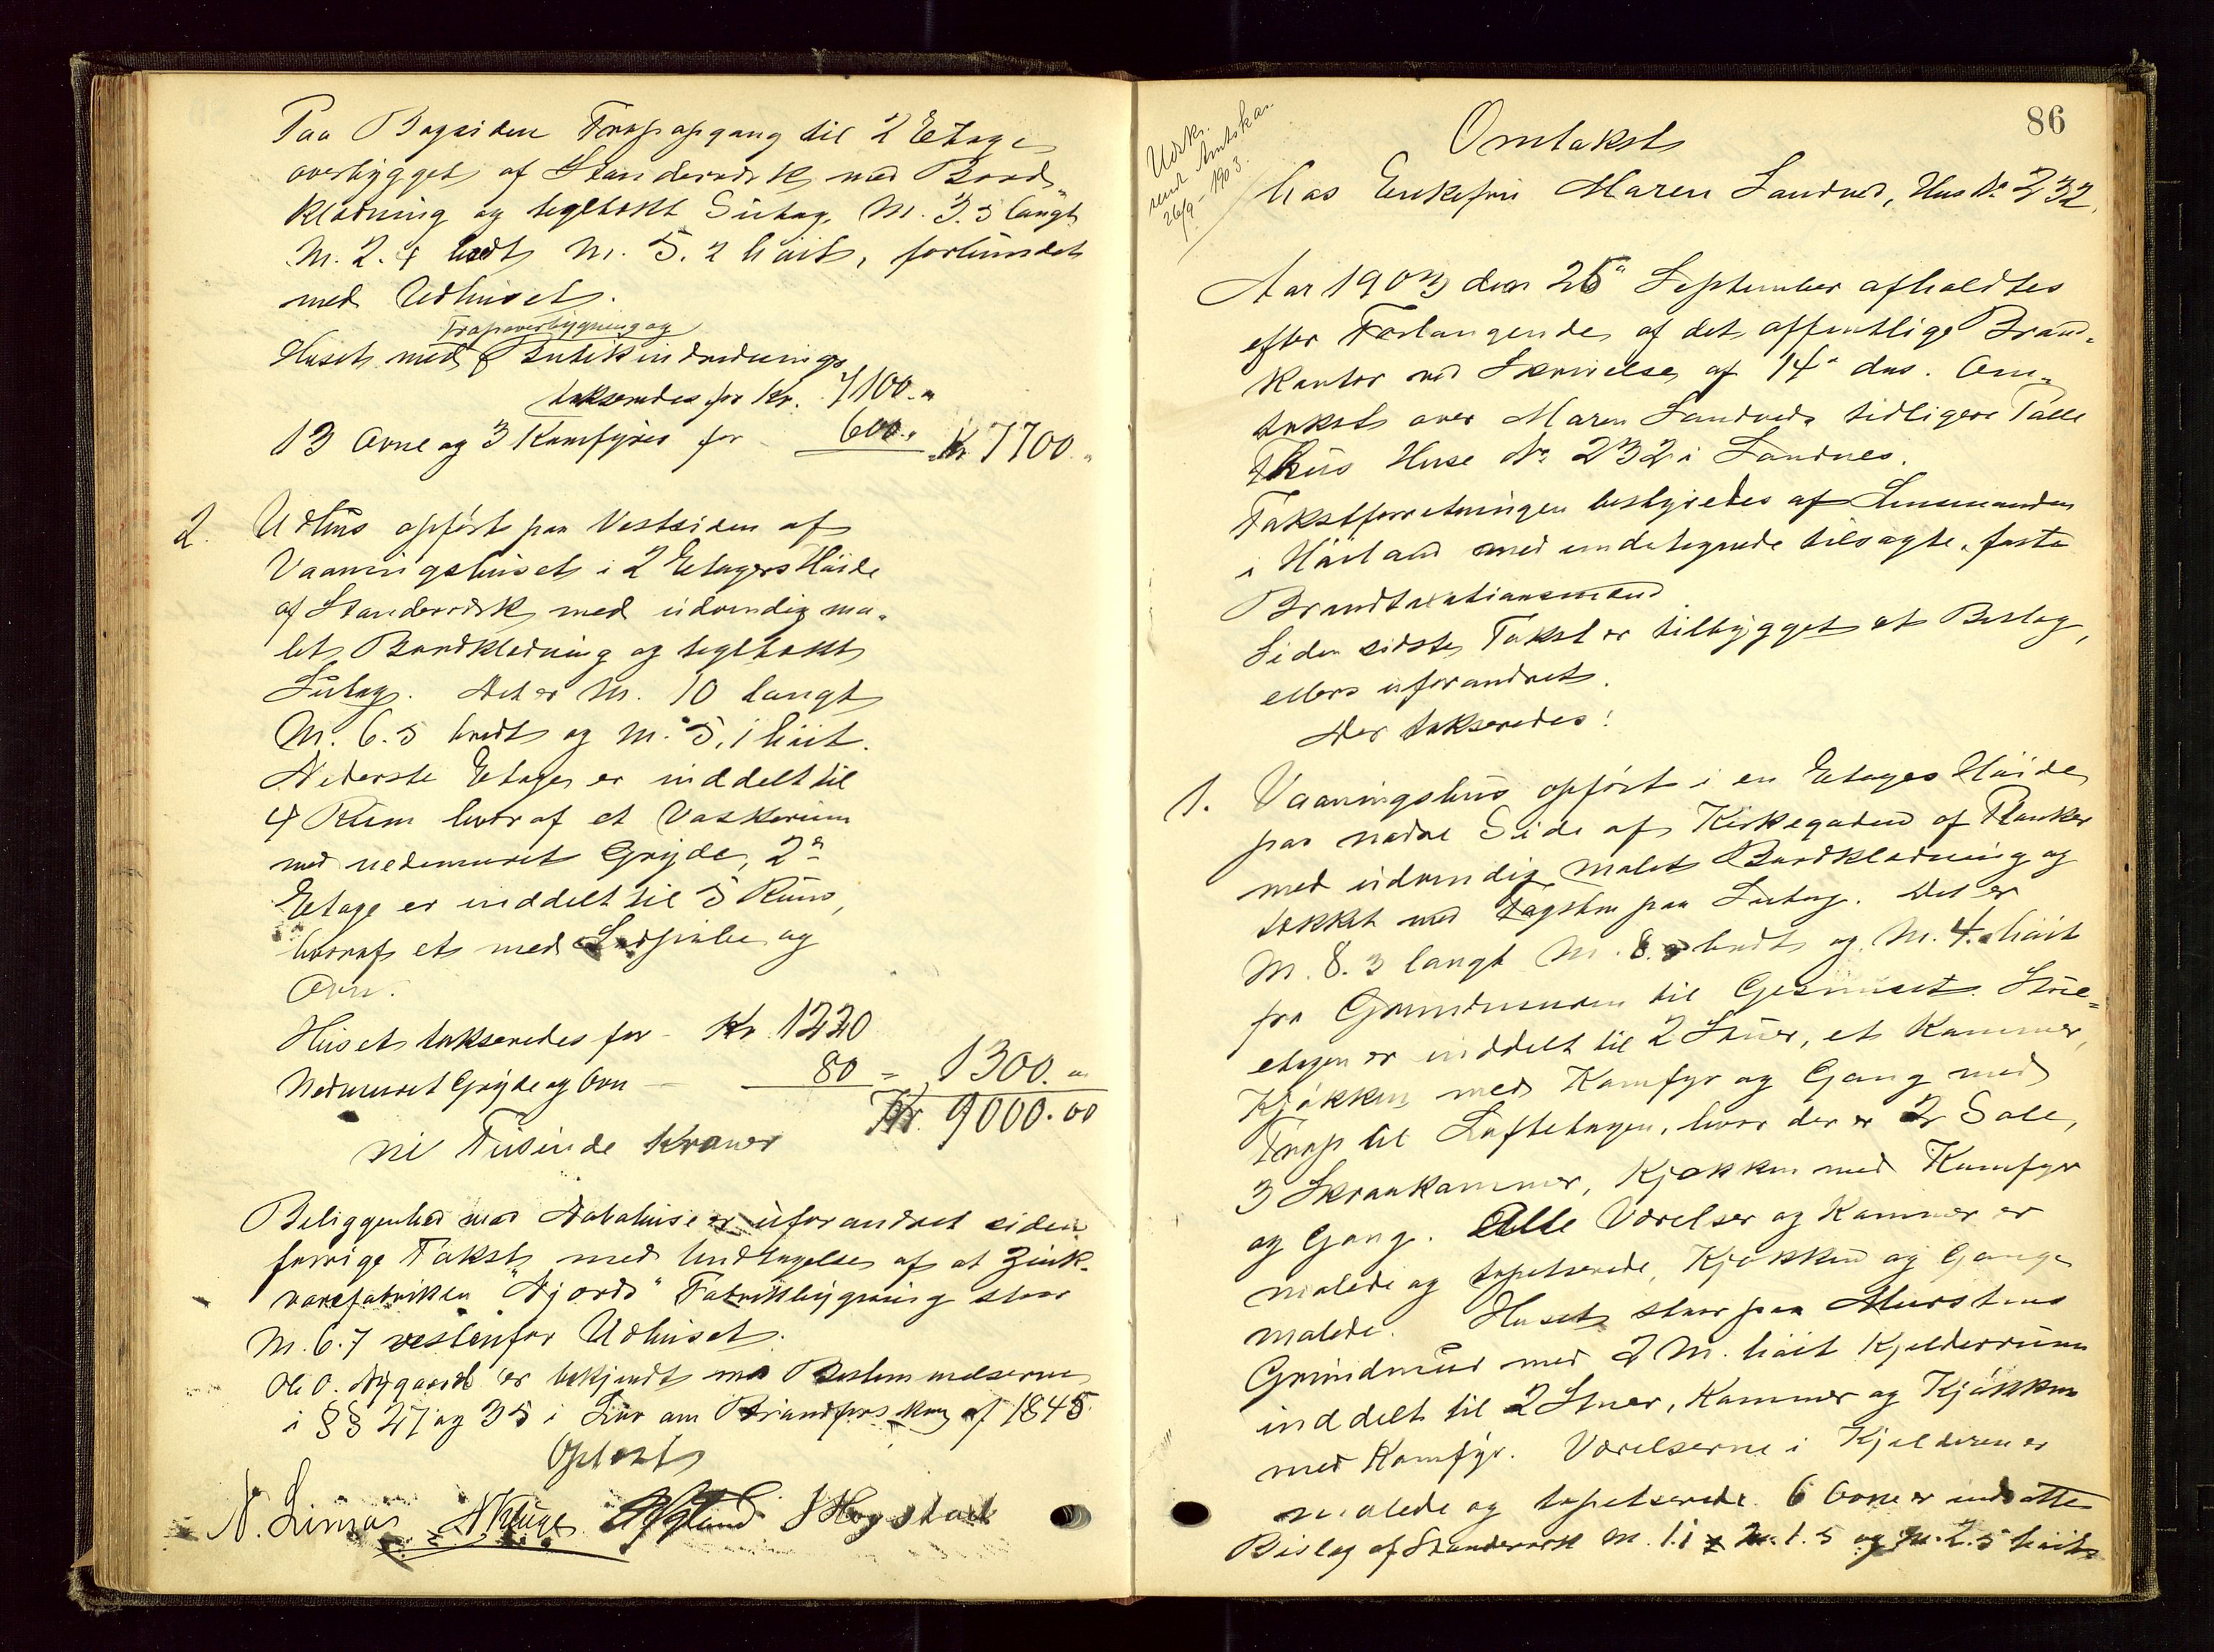 Paa Bagsiden Trapopgang til 2 Etage
overbygget af Standerværk med Bord-
klædning og teglhækt Sutag, M. 3.5 langt
M. 2.4 bredt M. 5.2 høit, forbundet
med Udhuset.
Trapoverbygning og
Huset med Butikindredning
takseredes for Kr. 7100.-
13 Ovne og 3 Komfyrer for - 600.- Kr 7700.-
2. Udhus opført paa Vestsiden af
Vaaningshuset i 2 Etagers Høide
af Standerværk med udvendig ma-
let Bordklædning og teglhækt
Sutag. Det er M. 10 langt
M. 6.5 bredt og M. 5.1 høit.
Nederste Etage er inddelt til
4 Rum hvoraf et Vaskerum
med nedmuret Gryde, 2n
Etage er inddelt til 5 Rum,
hvoraf et med og
Ovn.
Huset takseredes for - Kr. 1220
Nedmuret Gryde og Ovn - 80 = 1300.-
Kr. 9000.00
ni Tusinde Kroner
Beliggenhed med Nabohuse er uforandret siden
forrige Takst med Undtagelse af at Zink-
varefabriken "Njords" Fabrikbygning staar
M. 6.7 vestenfor Udhuset.
Ole O. Nygaard er bekjendt med Bestemmelserne
i §§ 27 og 35 i Lov om Brandforsikring af 1845
Oplæst
N. Limas
86
Udsk.
send Amtskas.
26/9-1903.
Omtakst
hos Enkefru Maren Sandved, Hus No 232.
Aar 1903 den 25" September afholdtes
efter Forlangende af det offentlige Brand-
kontor ved Skrivelse af 14' ds. Om-
takst over Maren Sandveds tidligere Talle
Huse No 232 i Sandnes.
Takstforretningen bestyredes af Lensmanden
i Høiland med undertegnede tilsagte, faste
Brandtaxationsmænd
Siden sidste Takst er tilbygget et Bislag,
ellers uforandret.
Der takseredes:
1. Vaaningshus opført i en Etages Høide
paa nedre Side af Kirkegaden af Planker
med udvendig malet Bordklædning og
tækket med Tagsten paa Sutag. Det er
M. 8.3 langt M. 8. bredt og M. 4. høit
fra Grundmuren til Gesimset. Stue-
etagen er inddelt til 2 Stuer, et Kammer,
Kjøkken med Komfyr og Gang med
Trap til Loftetagen, hvor der er 2 Sale,
3 Skraakammer, Kjøkken med Komfyr
og Gang. Alle Værelser og Kammer er
malede og tapetserede, Kjøkken og Gange
malede. Huset staar paa Murstens
Grundmur med 2 M. høit Kjelderrum
inddelt til 2 Stuer, Kammer og Kjøkken
med Komfyr. Værelserne i Kjelderen er
malede og tapetserede. 6 Ovne er indsatte
Bislag af Standerværk M. 1.1 x M. 1.5 og M. 2.5 høit